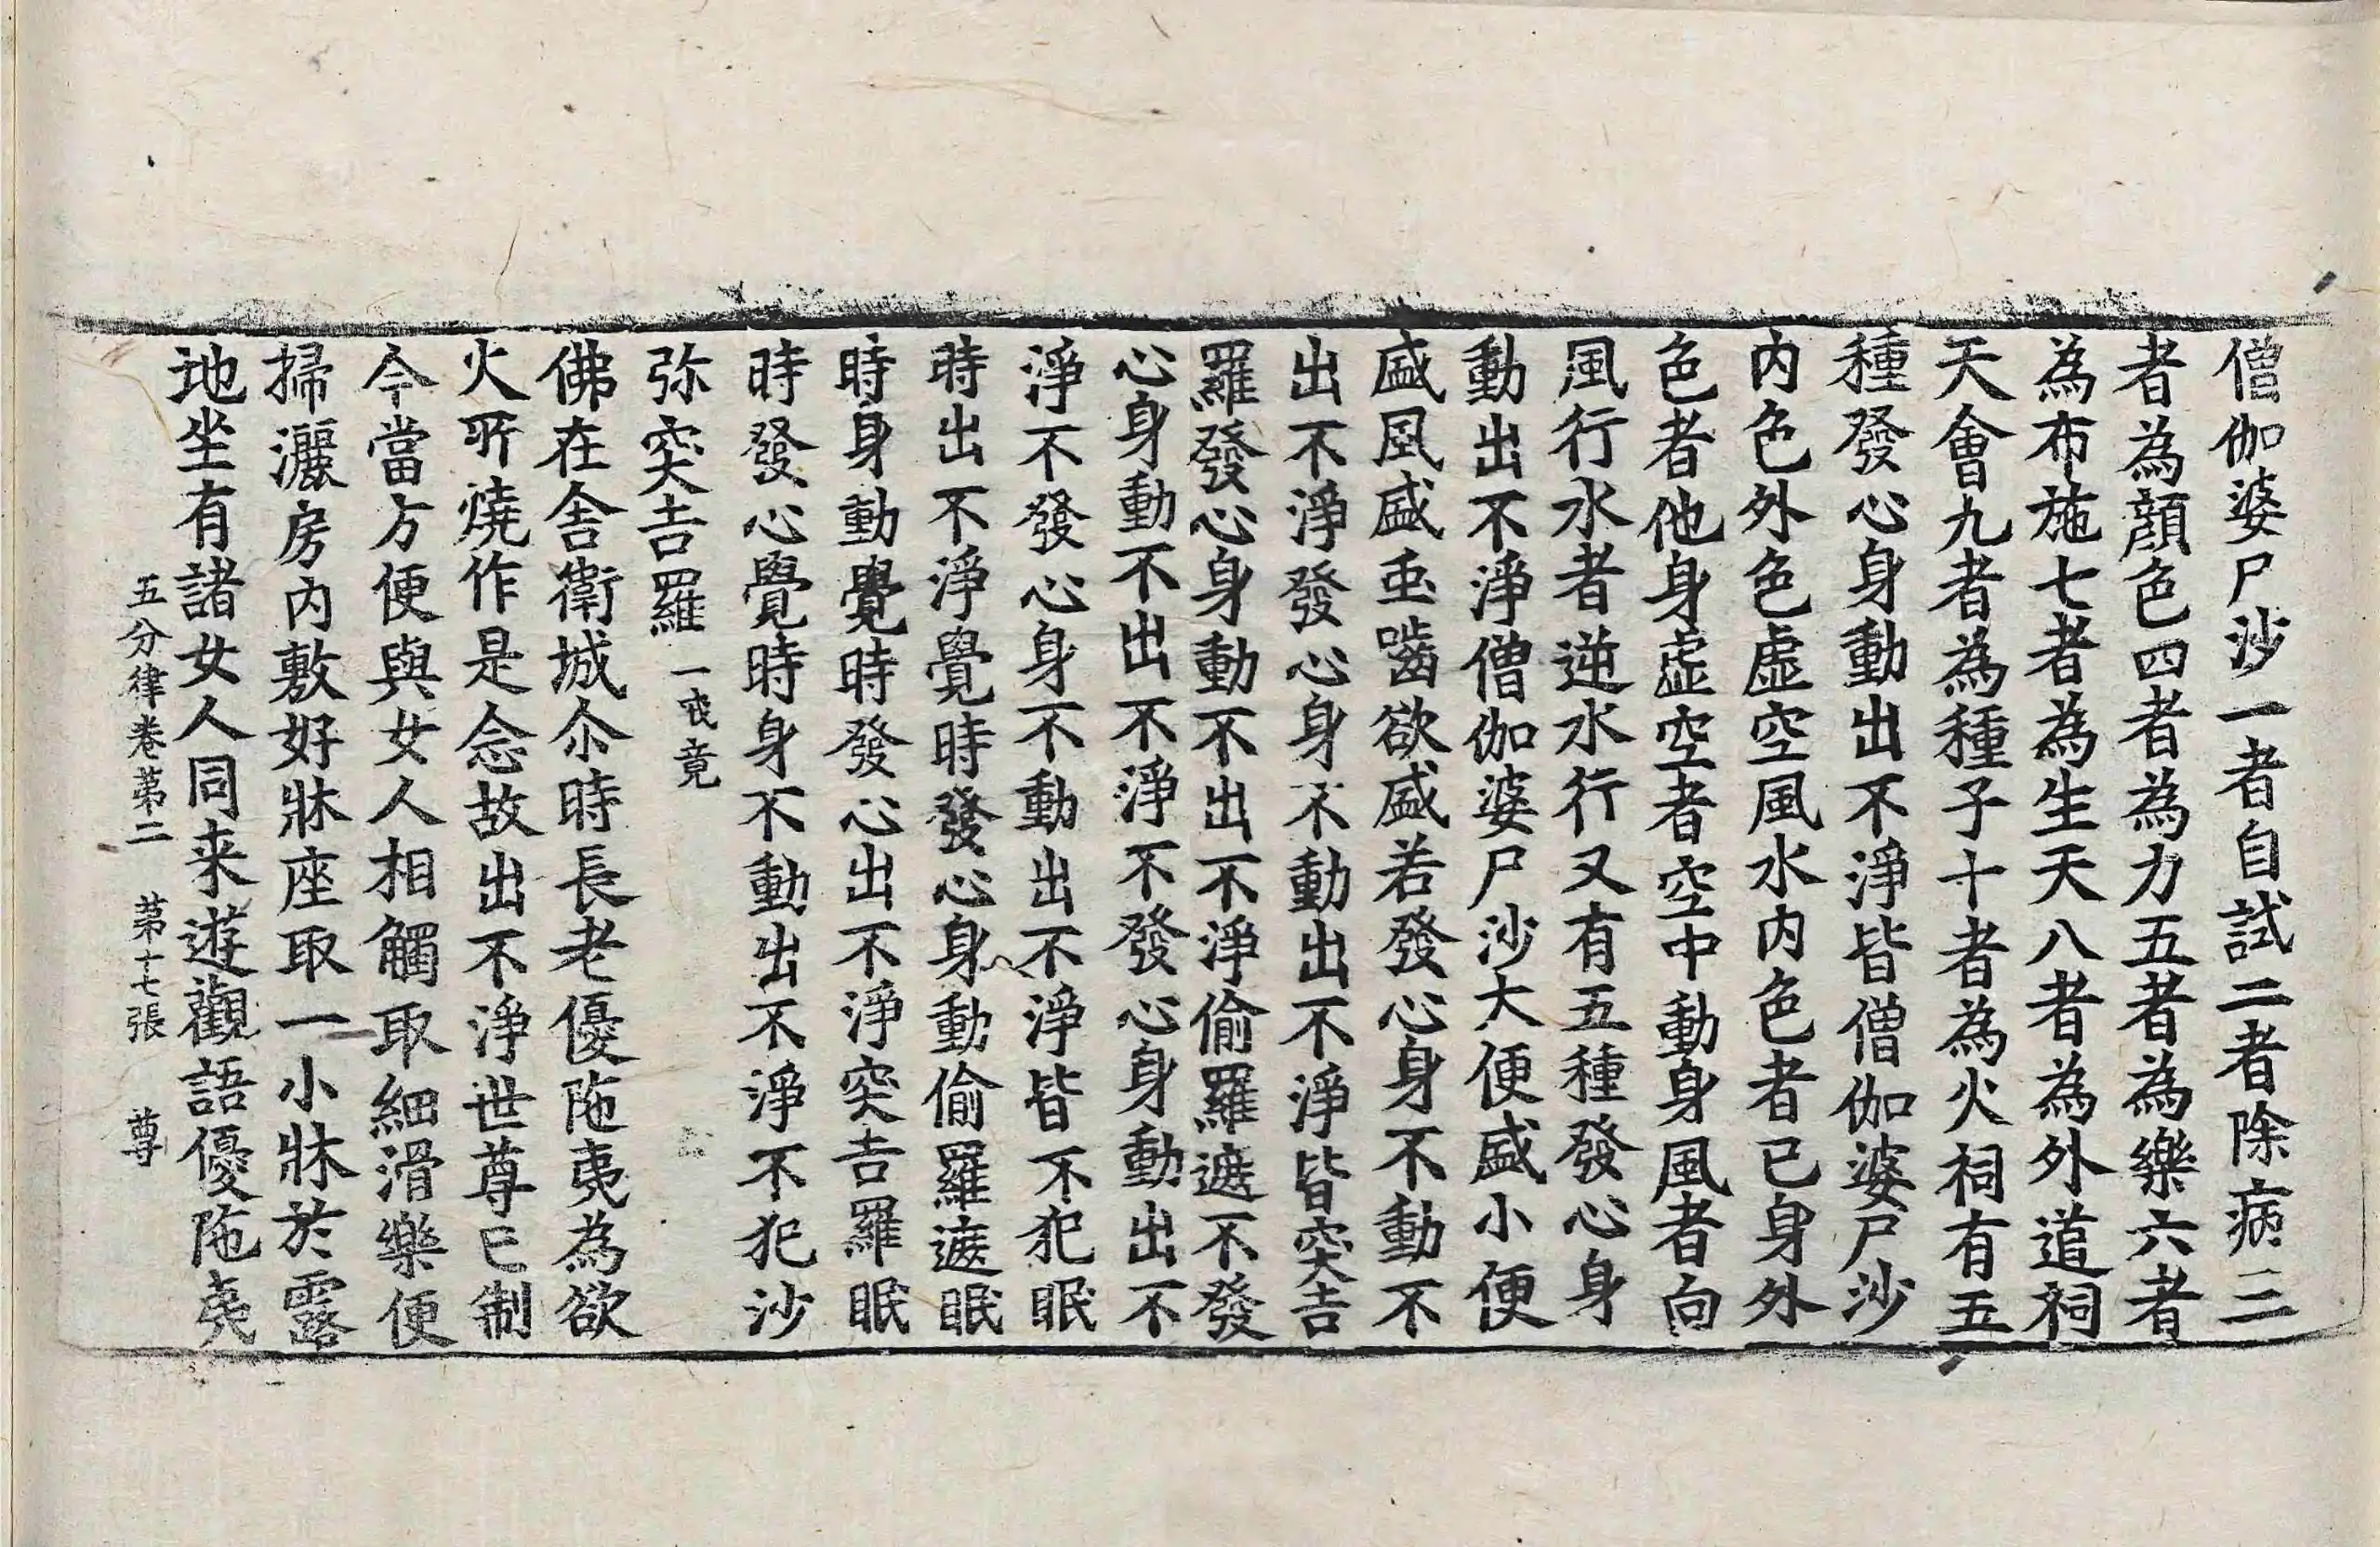 僧伽婆尸沙一者自試二者除病三
者為顔色四者為力五者為樂六者
為布施七者為生天八者為外道祠
天會九者為種子十者為火祠有五
種發心身動出不淨皆僧伽婆尸沙
内色外色虛空風水内色者已身外
色者他身虛空者空中動身風者向
風行水者逆水行又有五種發心身
動出不淨僧伽婆尸沙大便盛小便
盛風盛䖝嚙欲盛若發心身不動不
出不淨發心身不動出不淨皆突吉
羅發心身動不出不淨偷羅遮不發
心身動不出不淨不發心身動出不
淨不發心身不動出不淨皆不犯眠
時出不淨覺時發心身動偷羅遮眠
時身動覺時發心出不淨突吉羅眠
時發心覺時身不動出不淨不犯沙
弥突吉羅 一戒竟
佛在舍衛城尒時長老優陁夷為欲
火所燒作是念故出不淨世尊已制
今當方便與女人相觸取細滑樂便
掃灑房内敷好牀座取一小牀於露
地坐有諸女人同来遊觀語優陁夷
五分律卷第二 第十七張 尊